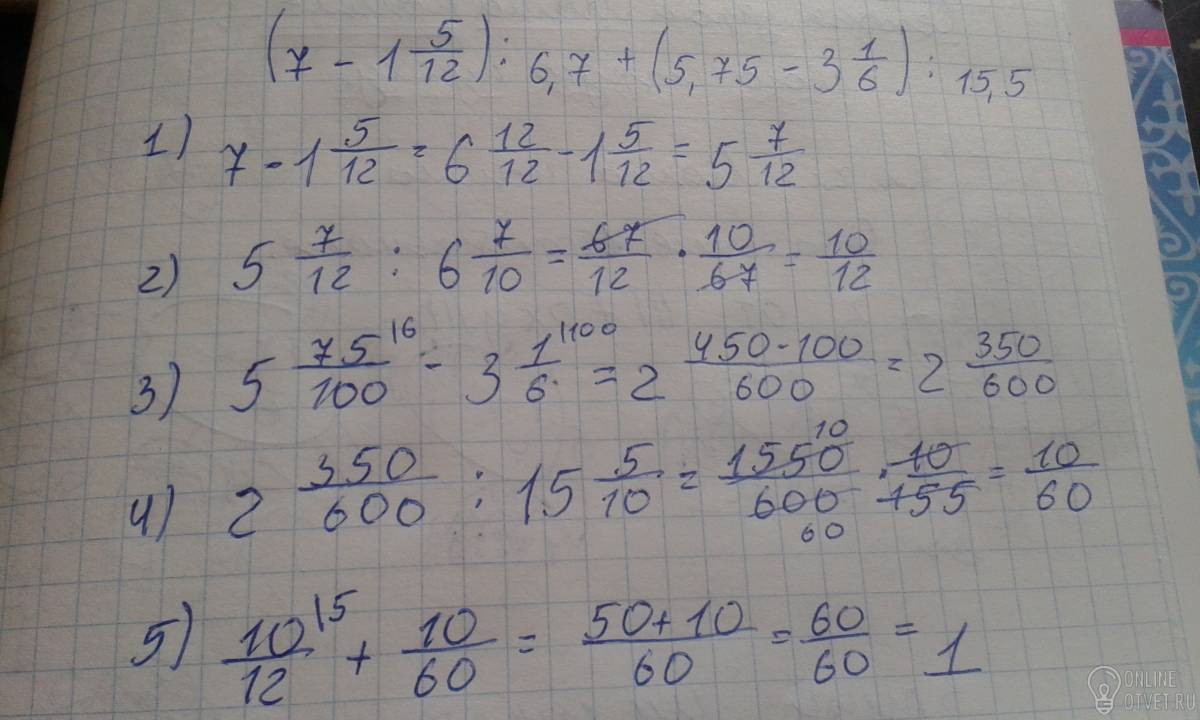 (7 - 1 5/12) : 6,7 + (5,75 - 3 1/6) : 15,5
1) 7 - 1 5/12 = 6 12/12 - 1 5/12 = 5 7/12
2) 5 7/12 : 6 7/10 = 67/12 · 10/67 = 10/12
3) 5 75/100 |6 - 3 1/6 |100 = 2 450-100/600 = 2 350/600
4) 2 350/600 : 15 5/10 = 1550/600 10 60 · 10/155 = 10/60
5) 10/12 |5 + 10/60 = 50+10/60 = 60/60 = 1
ONLINE
OTVET.RU